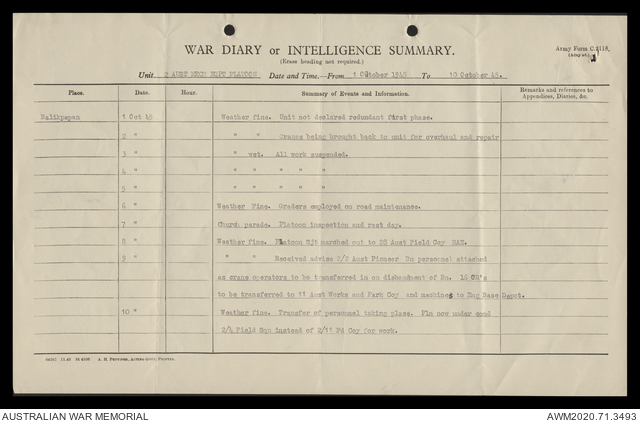 WAR DIARY or INTELLIGENCE SUMMARY.
Army Form C.2118,
(Erase heading not required.)
Unit 2 AUST MECH EQPT PLATOON Date and Time.—From 1 October 1945 To 10 October 45.
Place. Date. Hour. Summary of Events and Information. Remarks and references to Appendices, Diaries, &c.
Balikpapan 1 Oct 45 Weather fine. Unit not declared redundant first phase.
2 " " " Cranes being brought back to unit for overhaul and repair
3 " " wet. All work suspended.
4 " " " " " "
5 " " " " " "
6 " Weather Fine. Graders employed on road maintenance.
7 " Church parade. Platoon inspection and rest day.
8 " Weather fine. Platoon Sjt marched out to 22 Aust Field Coy RAE.
9 " " " Received advise 2/2 Aust Pioneer Bn personnel attached
as crane operators to be transferred in on disbandment of Bn. 14 OR's
to be transferred to 11 Aust Works and Park Coy and machines to Eng Base Depot.
10 " Weather fine. Transfer of personnel taking place. Pln now under comd
2/4 Field Sqn instead of 2/11 Fd Coy for work.
A. H. PETTIFER, ACTING GOVT. PRINTER.
AUSTRALIAN WAR MEMORIAL
AWM2020.71.3493